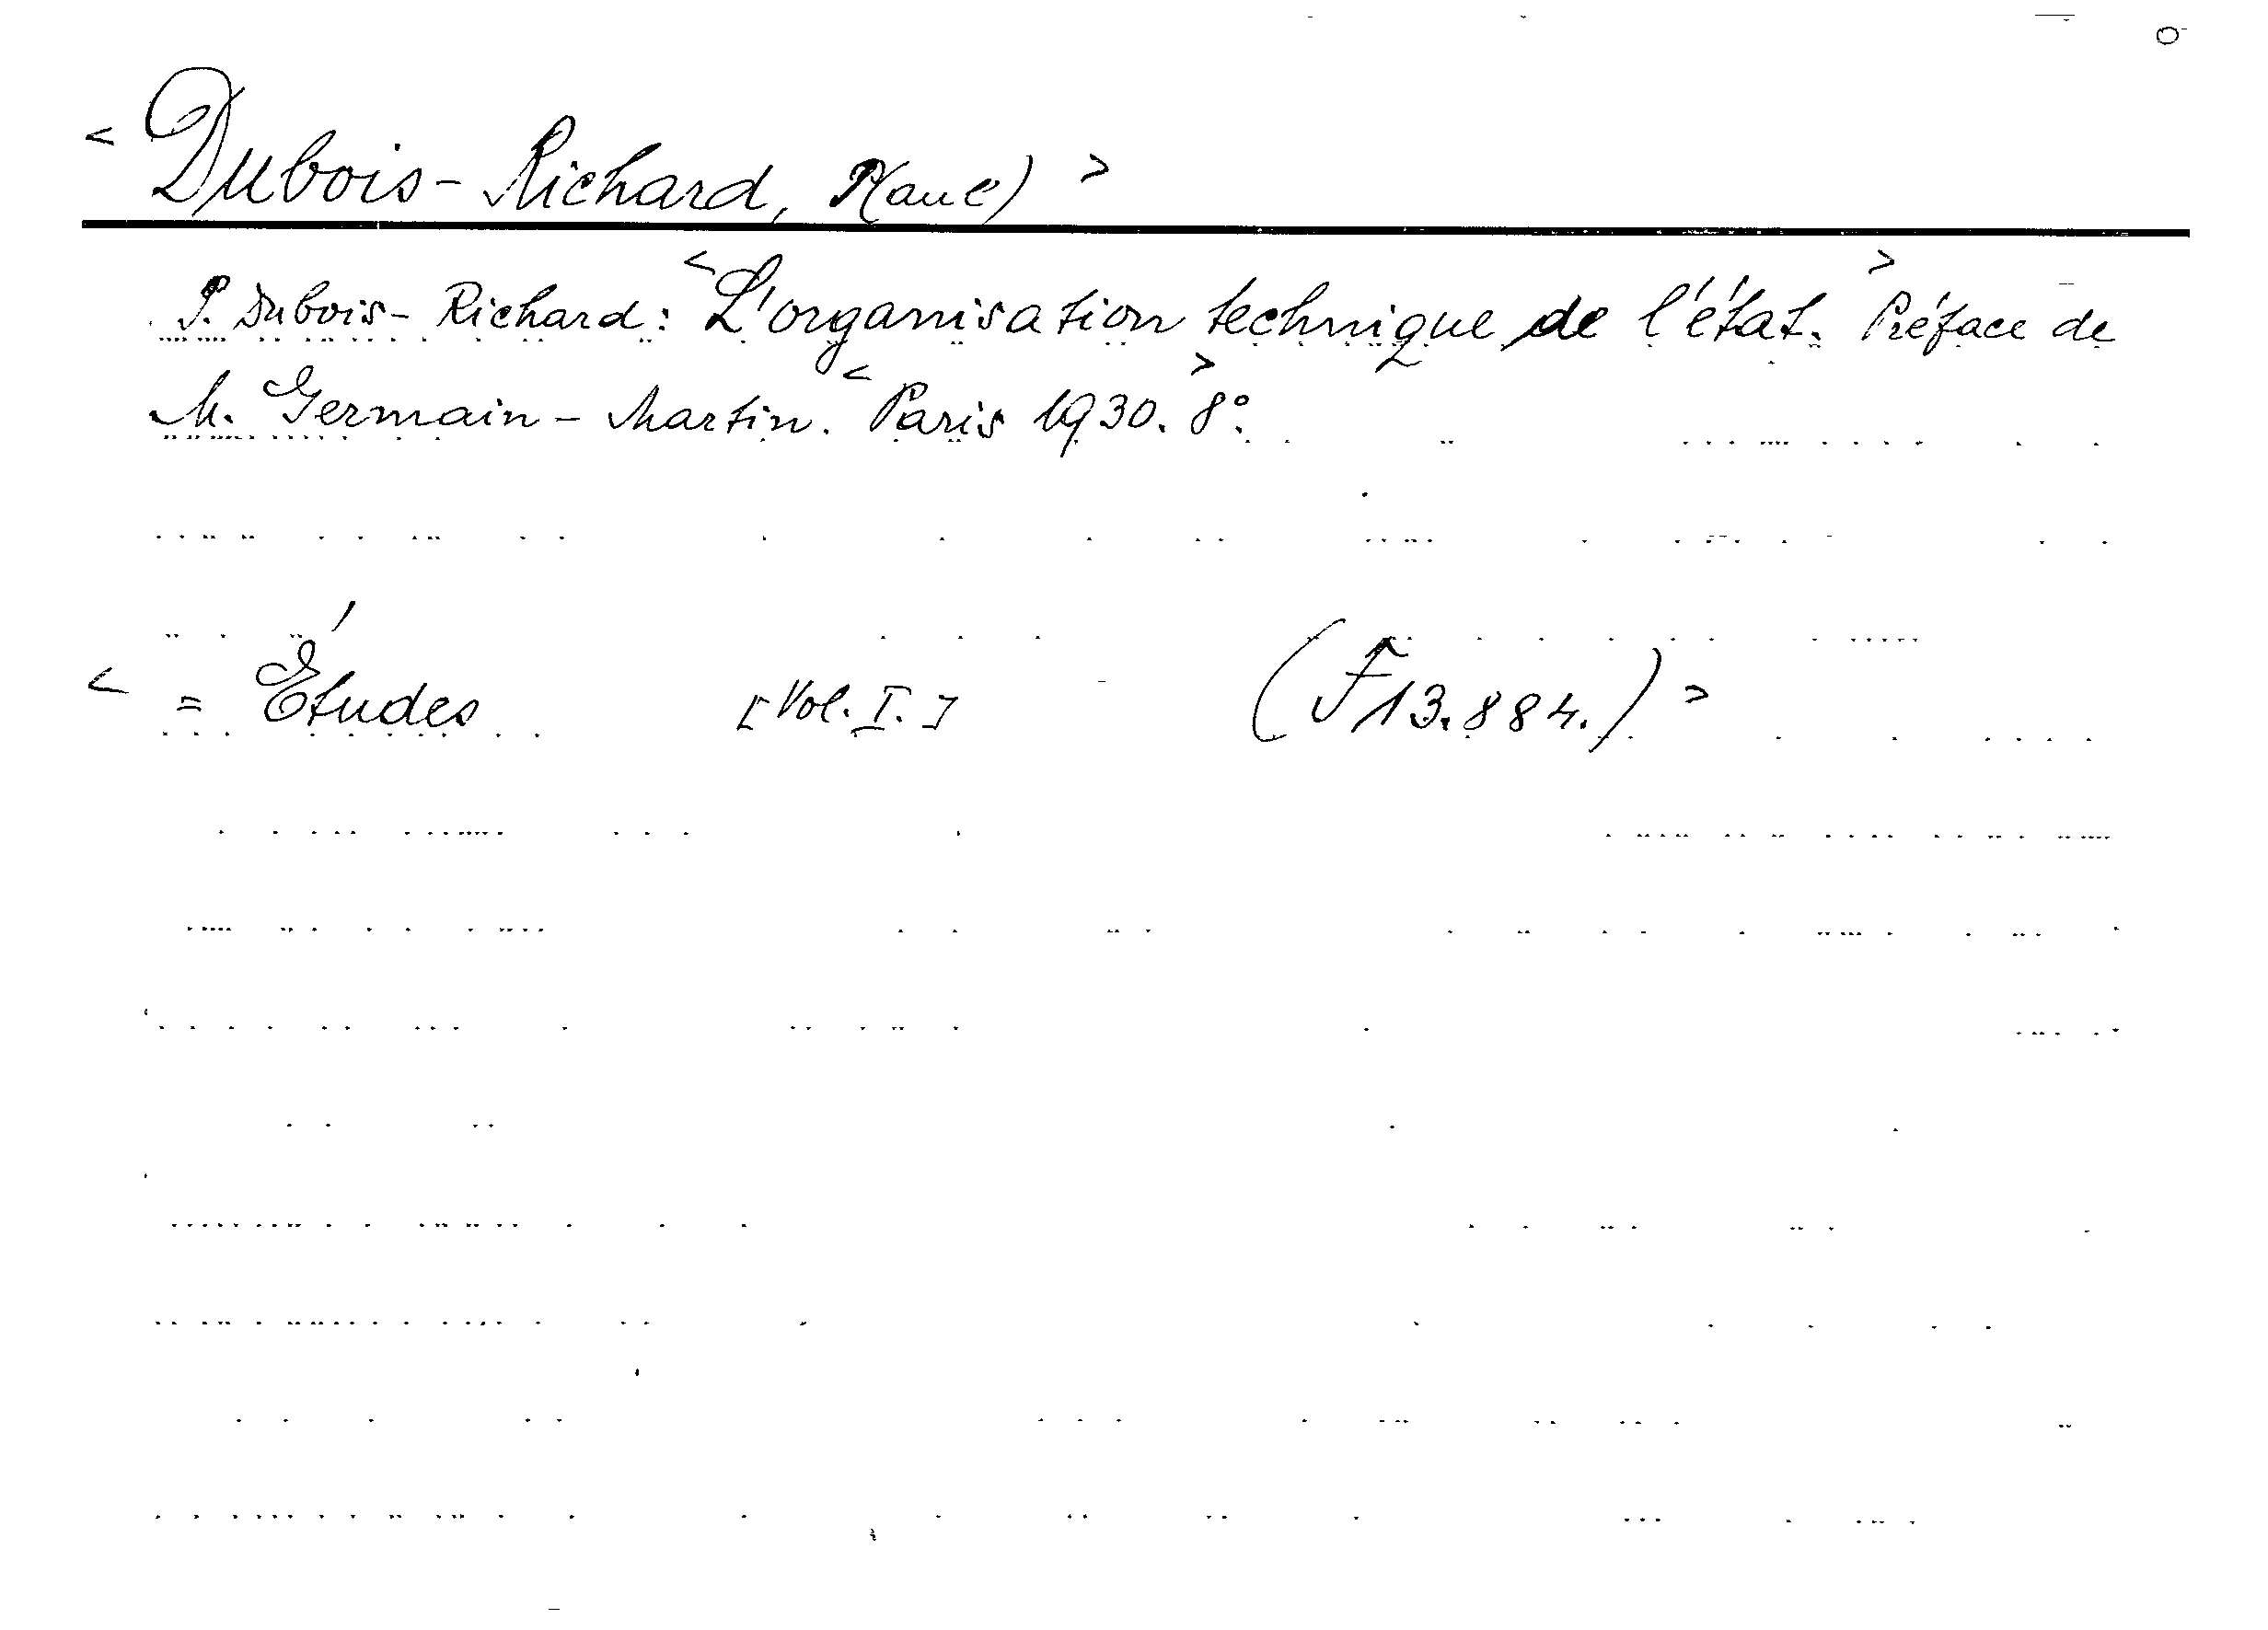 < Dubois-Richard, P(aul) >
P. Dubois-Richard: < L'organisation technique de l'état. > Préface de
M. Germain-Martin. < Paris 1930. > 8°.
< = Études [Vol. I.] (F 13.884.) >